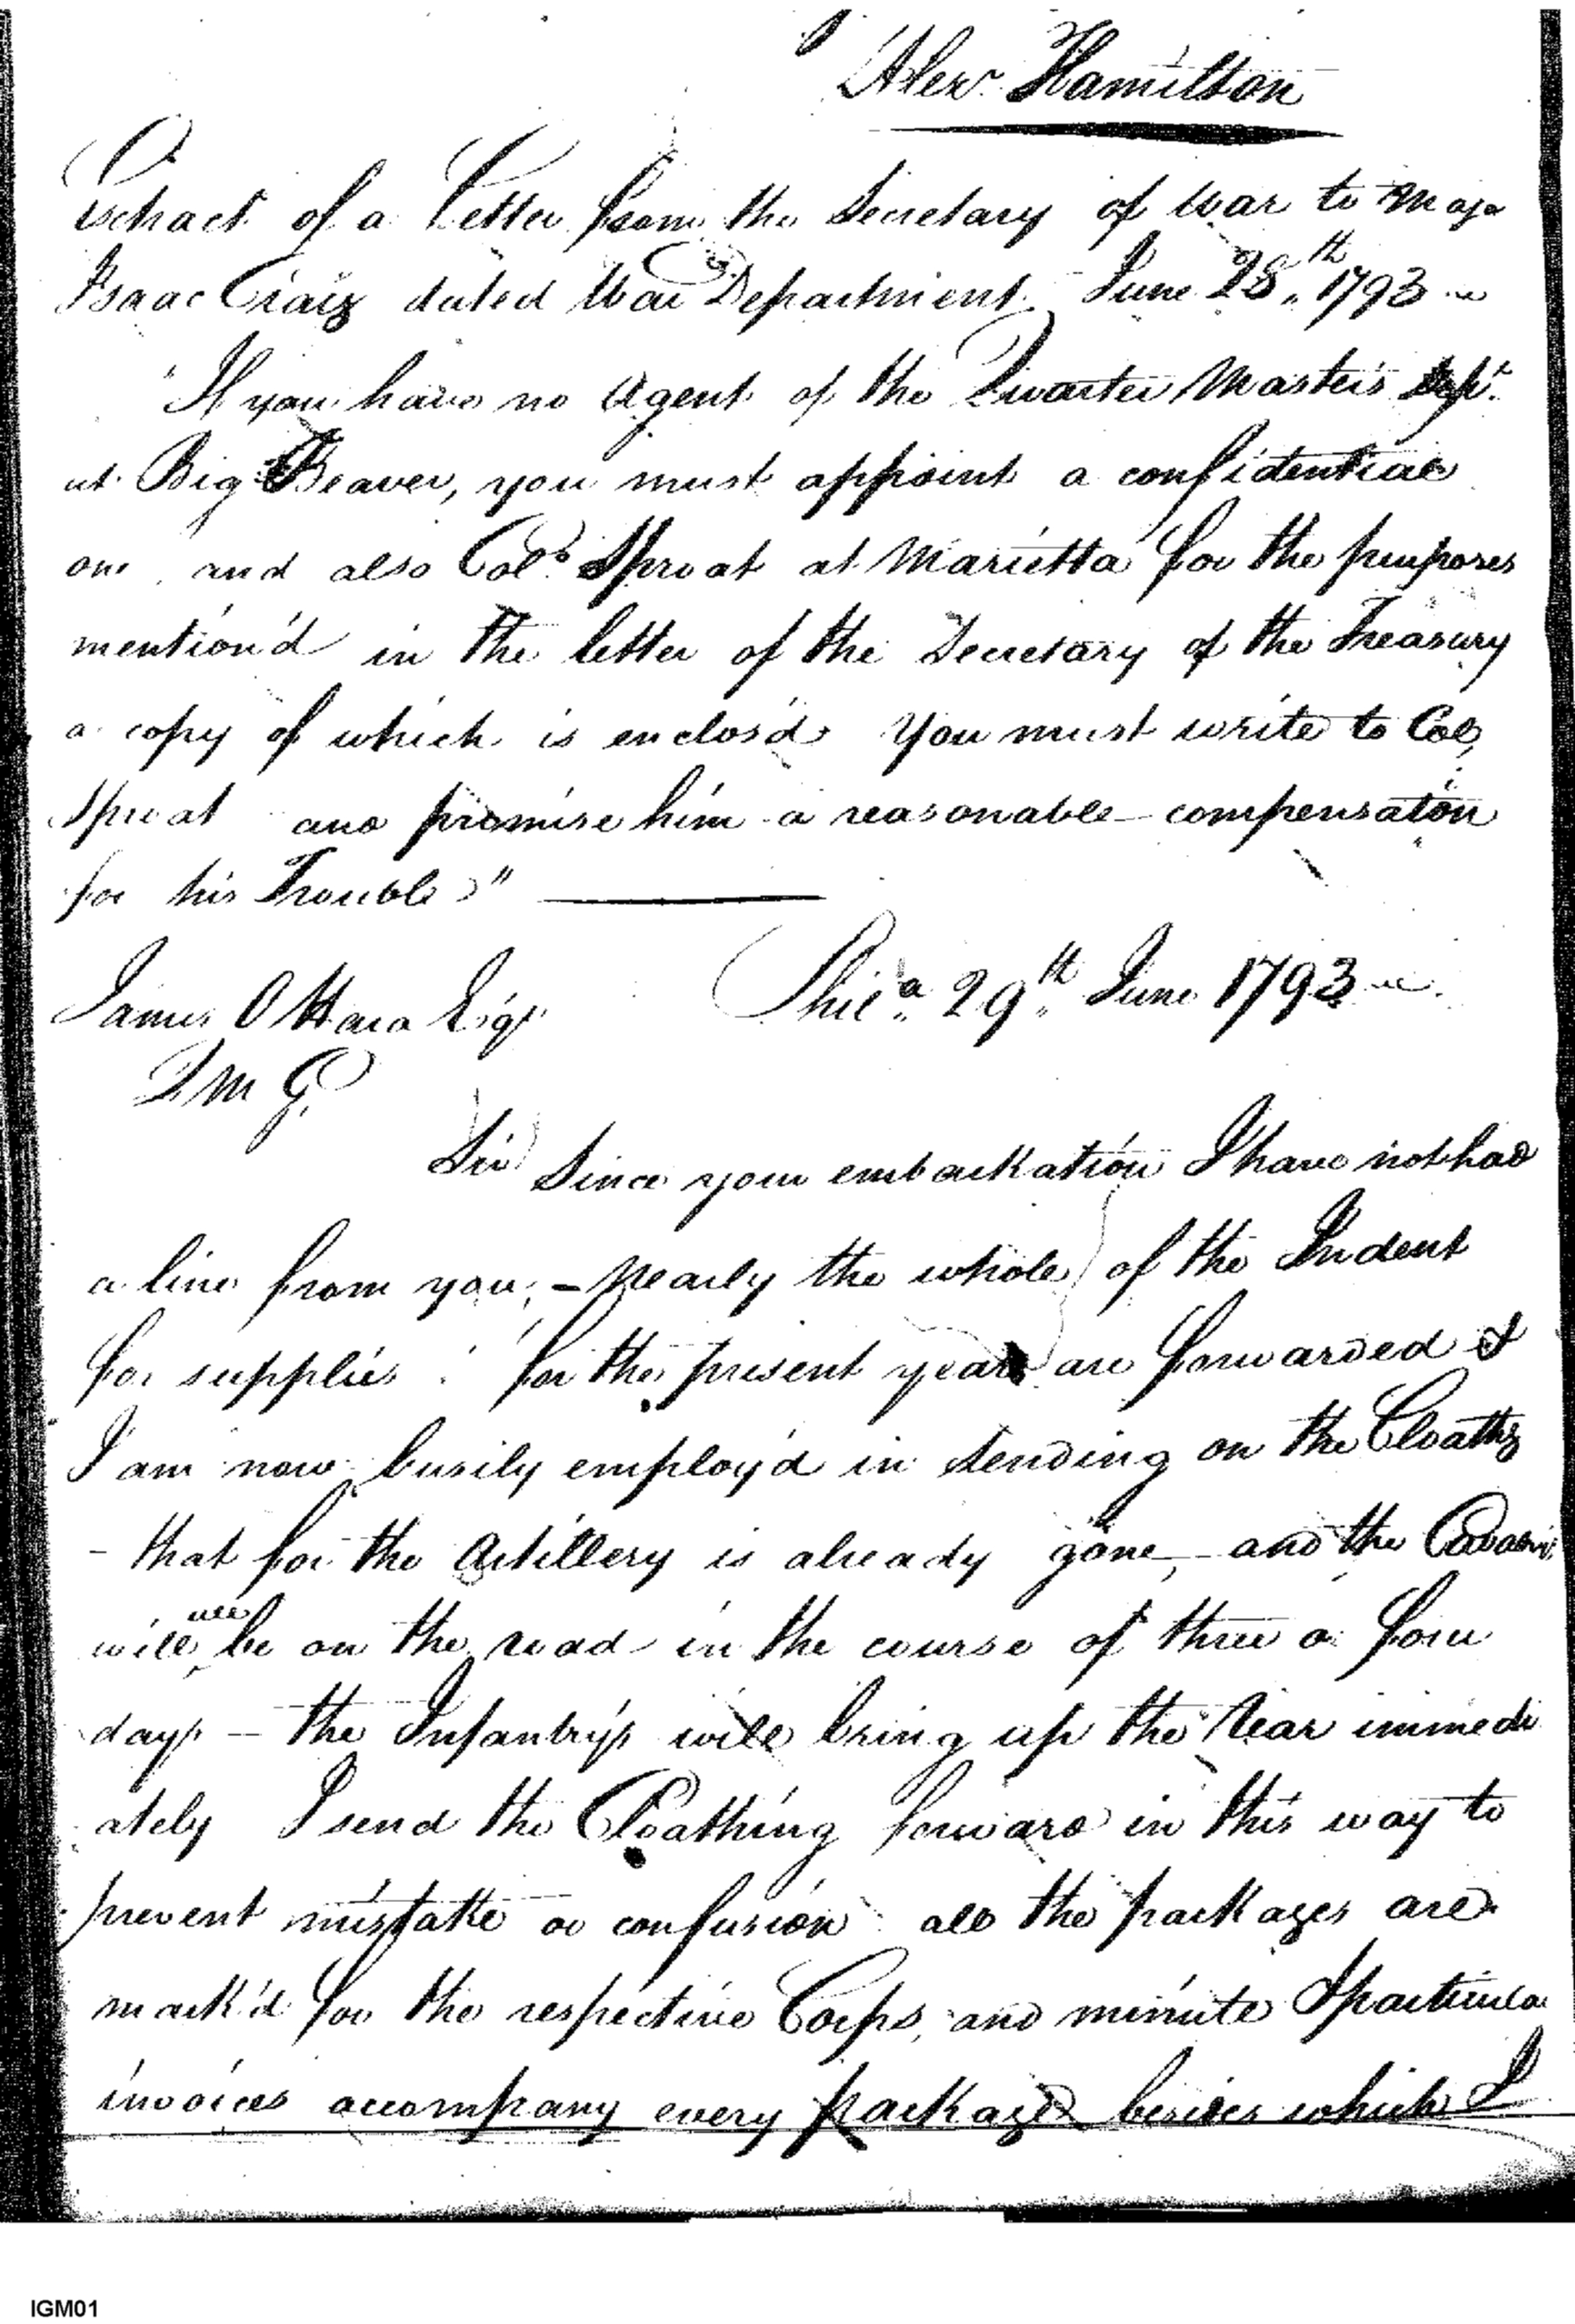 Alexr. Hamilton
Extract of a Letter from the Secretary of War to Majr
Isaac Craig dated War Department June 28th 1793
"If you have no Agent of the Quarter Masters Dept.
at Big Beaver, you must appoint a confidential
one, and also Colo. Sproat at Marietta for the purposes
mention'd in the letter of the Secretary of the Treasury
a copy of which is enclos'd You must write to Col,
Sproat and promise him a reasonable compensation
for his Trouble"
James O Hara Esqr
Phila. 29th June 1793
Q M G.
Sir Since your embarkation I have not had
a line from you; - Nearly the whole of the Indent
for supplies for the present year are forwarded &
I am now busily employ'd in sending on the Cloathg
- that for the Artillery is already gone, - and the
will all be on the road in the course of three or four
days - the Infantry's will bring up the Rear immedi
ately I send the Cloathing forward in this way to
prevent mistake or confusion all the packages are
mark'd for the respective Corps, and minute & particular
invoices accompany every package besides which I
IGM01